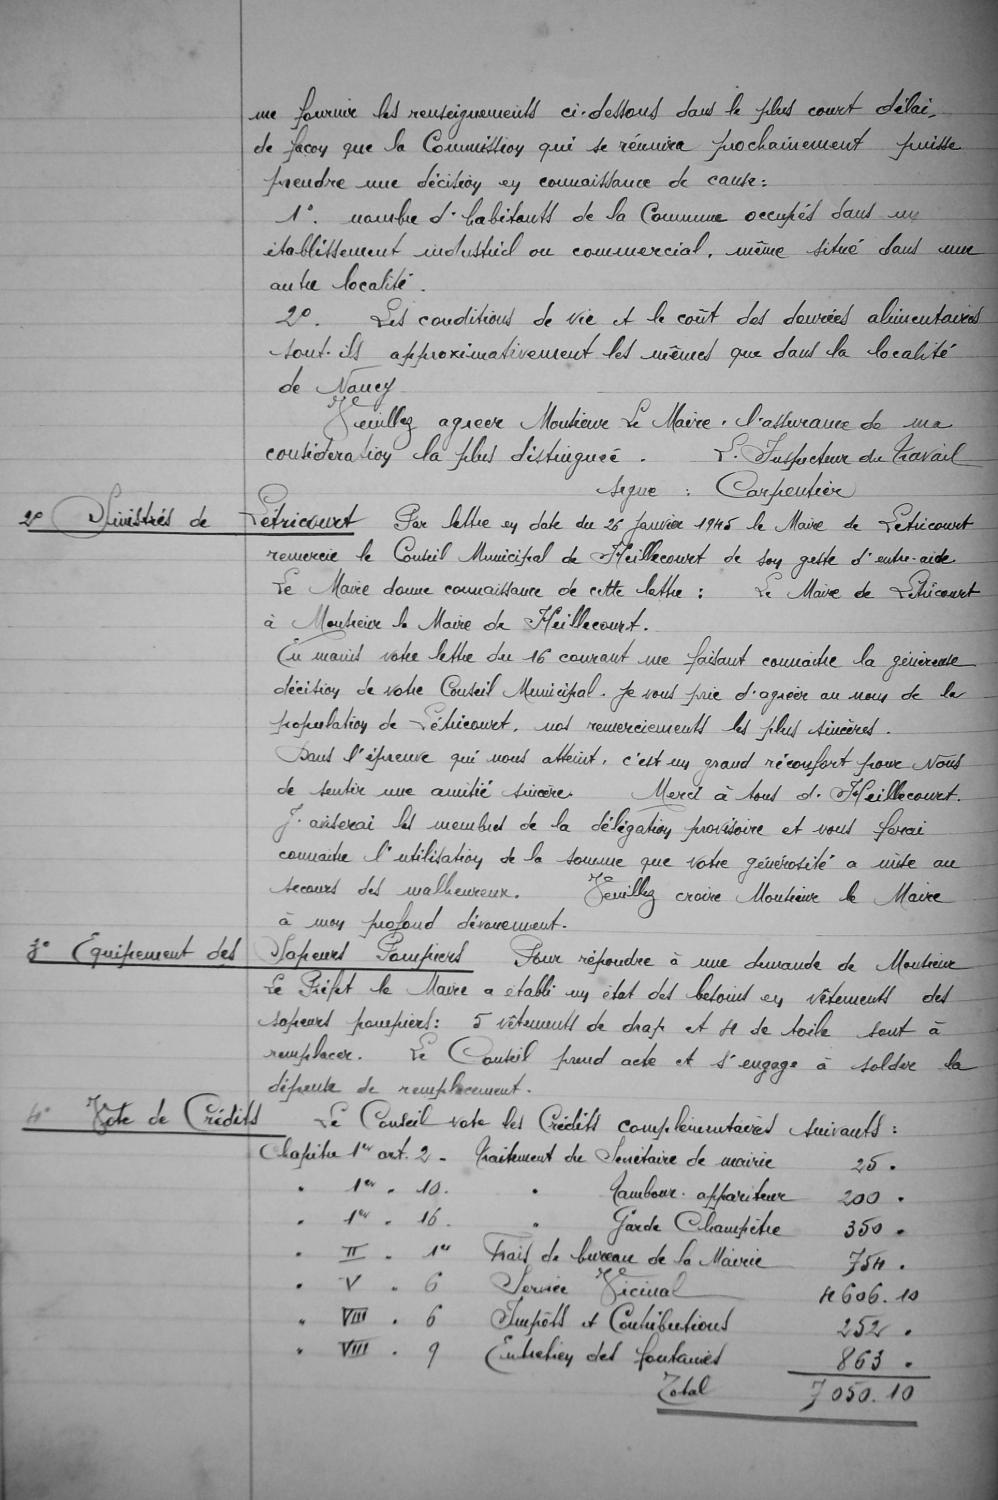 me fournir les renseignements ci-dessous dans le plus court délai,
de façon que la Commission qui se réunira prochainement puisse
prendre une décision en connaissance de cause :
1°. nombre d'habitants de la Commune occupés dans un
établissement industriel ou commercial, même situé dans une
autre localité.
2°. Les conditions de vie et le coût des denrées alimentaires
sont-ils approximativement les mêmes que dans la localité
de Nancy
Veuillez agréer Monsieur Le Maire, l'assurance de ma
considération la plus distinguée. L'Inspecteur du Travail
signé : Carpentier
2° Sinistrés de Létricourt Par lettre en date du 25 janvier 1945 le Maire de Létricourt
remercie le Conseil Municipal de Heillecourt de son geste d'entre-aide
Le Maire donne connaissance de cette lettre : Le Maire de Létricourt
à Monsieur le Maire de Heillecourt.
En mains votre lettre du 16 courant me faisant connaitre la généreuse
décision de votre Conseil Municipal. Je vous prie d'agréer au nom de la
population de Létricourt, nos remerciements les plus sincères.
Dans l'épreuve qui nous atteint, c'est un grand réconfort pour Nous
de sentir une amitié sincère. Merci à tous d. Heillecourt.
J'aviserai les membres de la délégation provisoire et vous ferai
connaitre l'utilisation de la somme que votre générosité a mise au
secours des malheureux. Veuillez croire Monsieur le Maire
à mon profond dévouement.
3° Equipement des Sapeurs Pompiers Pour répondre à une demande de Monsieur
Le Préfet le Maire a établi un état des besoins en vêtements des
sapeurs pompiers : 5 vêtements de drap et 4 de toile sont à
remplacer. Le Conseil prend acte et s'engage à solder la
dépense de remplacement.
4° Vote de Crédits Le Conseil vote les Crédits complémentaires suivants :
Chapitre 1er art. 2 - Traitement du Secrétaire de mairie 25 "
" 1er " 10. " Tambour-appariteur 200 "
" 1er " 16. " Garde Champêtre 350 "
" II " 1er Frais de bureau de la Mairie 754 "
" V " 6 Service Vicinal 4606.10
" VIII " 6 Impôts et Contributions 252 "
" VIII " 9 Entretien des fontaines 863 "
Total 7050.10